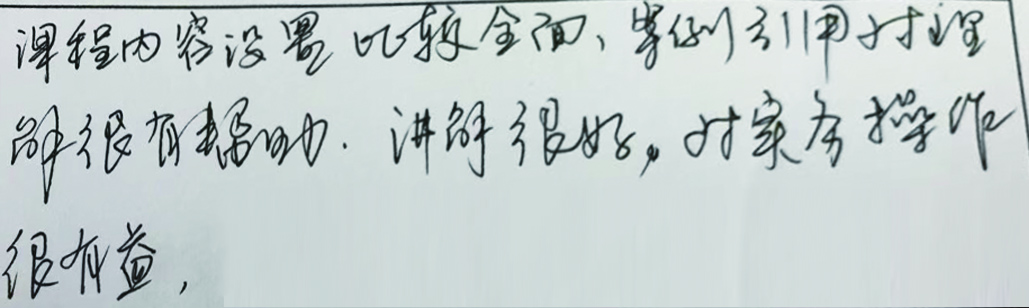 课程内容设置比较全面、案例引用对理
解很有帮助. 讲解很好，对实务操作
很有益，